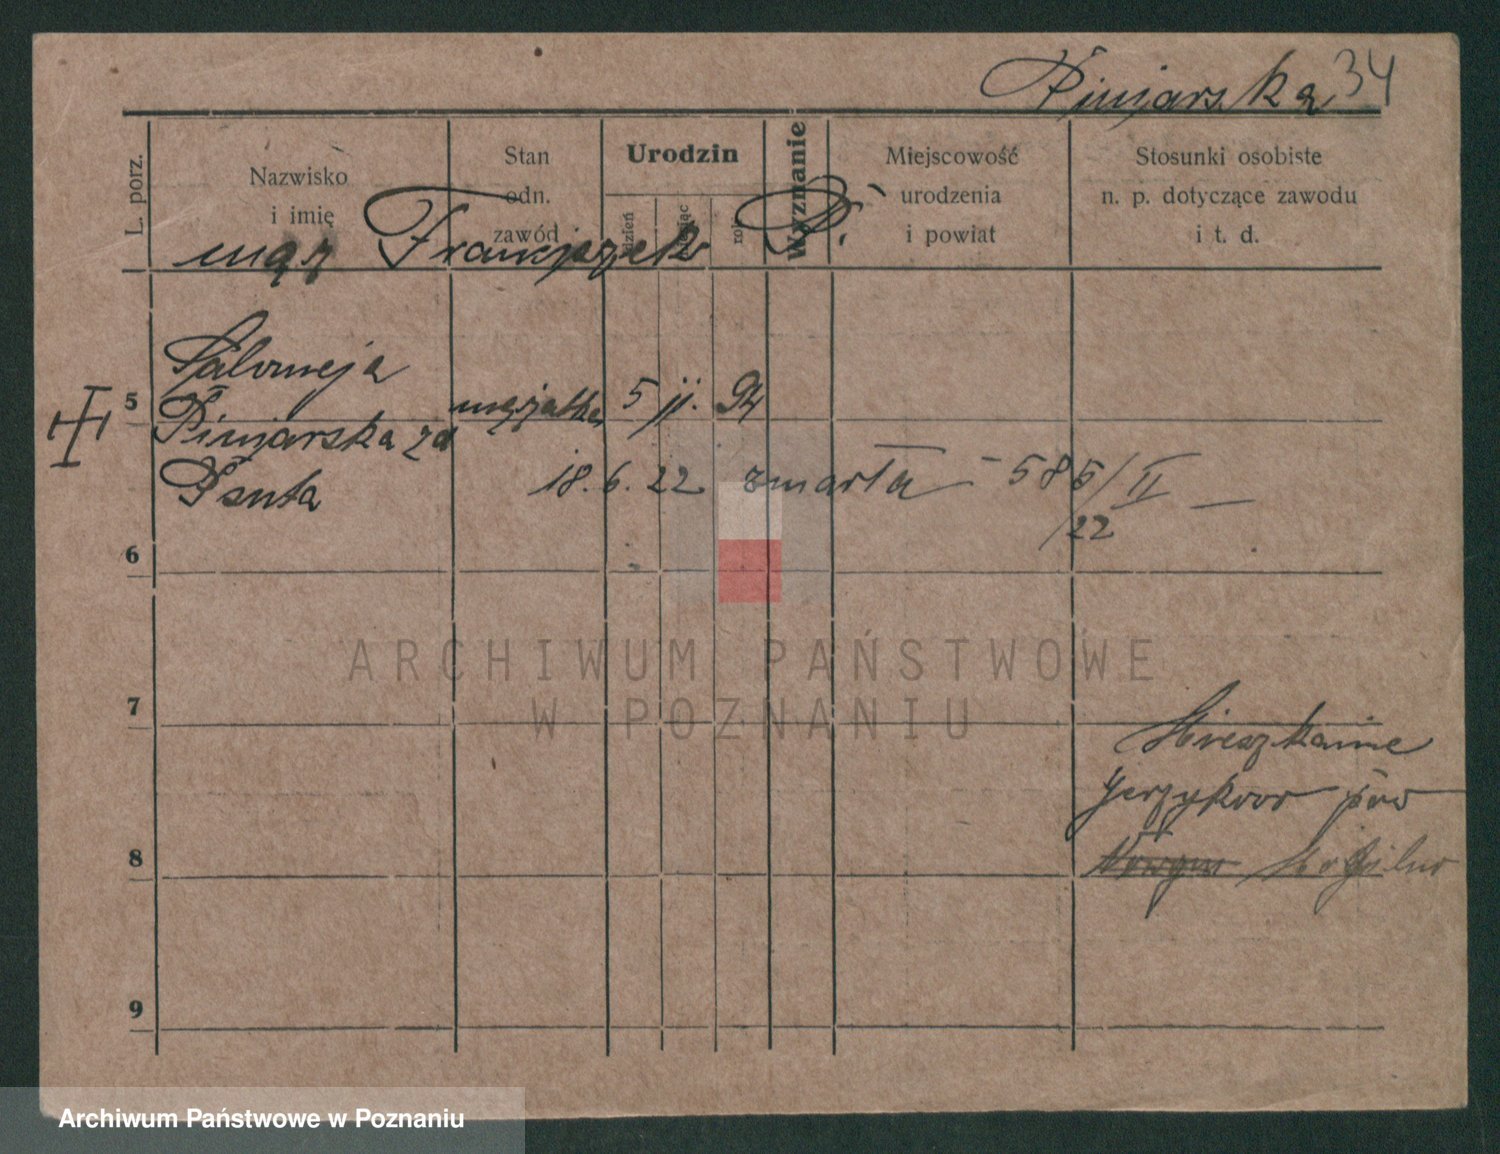 Piniarska 34
L. porz.
Nazwisko
i imię
Stan
odn.
zawód
Urodzin
dzień
miesiąc
rok
Wyznanie
Miejscowość
urodzenia
i powiat
Stosunki osobiste
n. p. dotyczące zawodu
i t. d.
mąż Franciszek P.
Salomeja
5
Piniarska zd
mężatka 5 11. 94
Psuta
18. 6. 22 zmarła - 585/II —
/22
6
7
Mieszkanie
Jerzykowo pow
8
Mogilno
9
ARCHIWUM PAŃSTWOWE
W POZNANIU
Archiwum Państwowe w Poznaniu